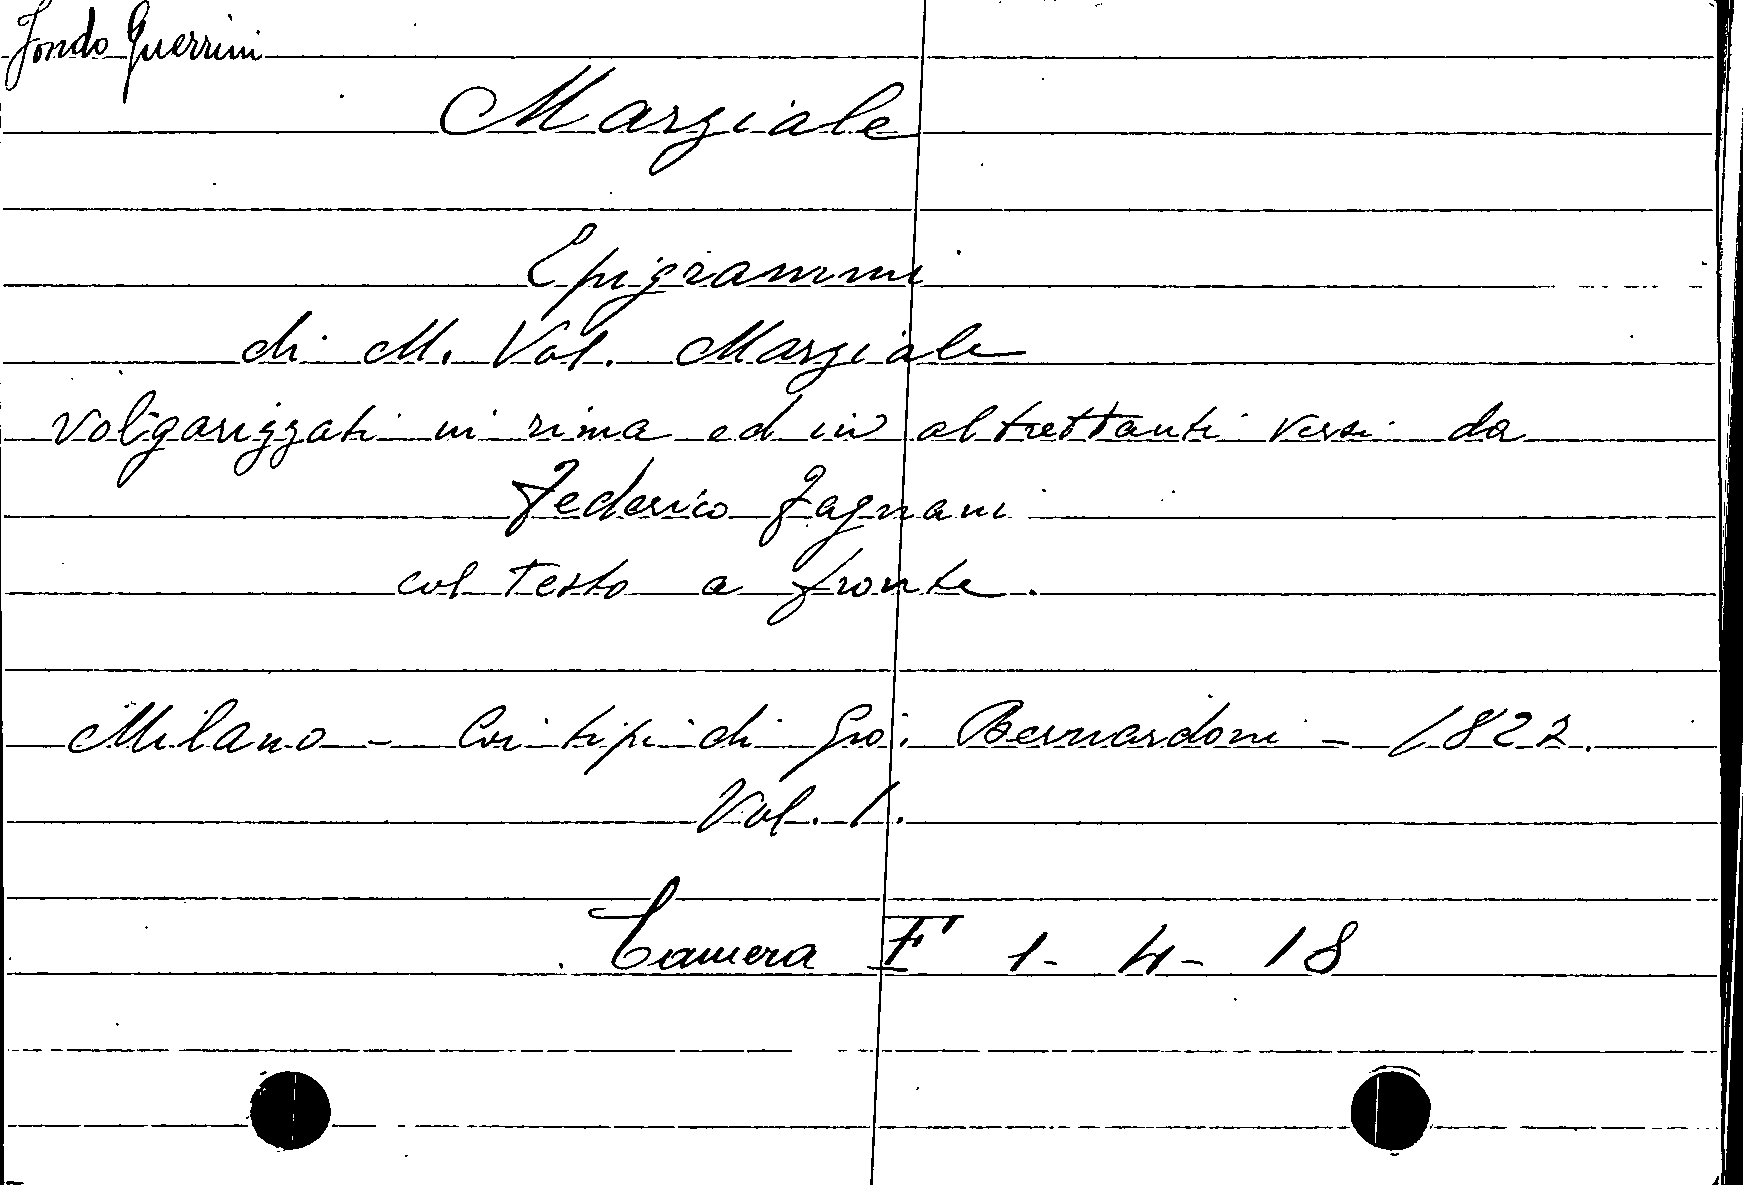 Fondo Guerrini
Marziale
Epigrammi
di M. Val. Marziale
volgarizzati in rima ed in altrettanti versi da
Federico Fagnani
col testo a fronte.
Milano - Coi tipi di Gio. Bernardoni - 1822.
Vol. 1.
Camera F 1 - 4 - 18